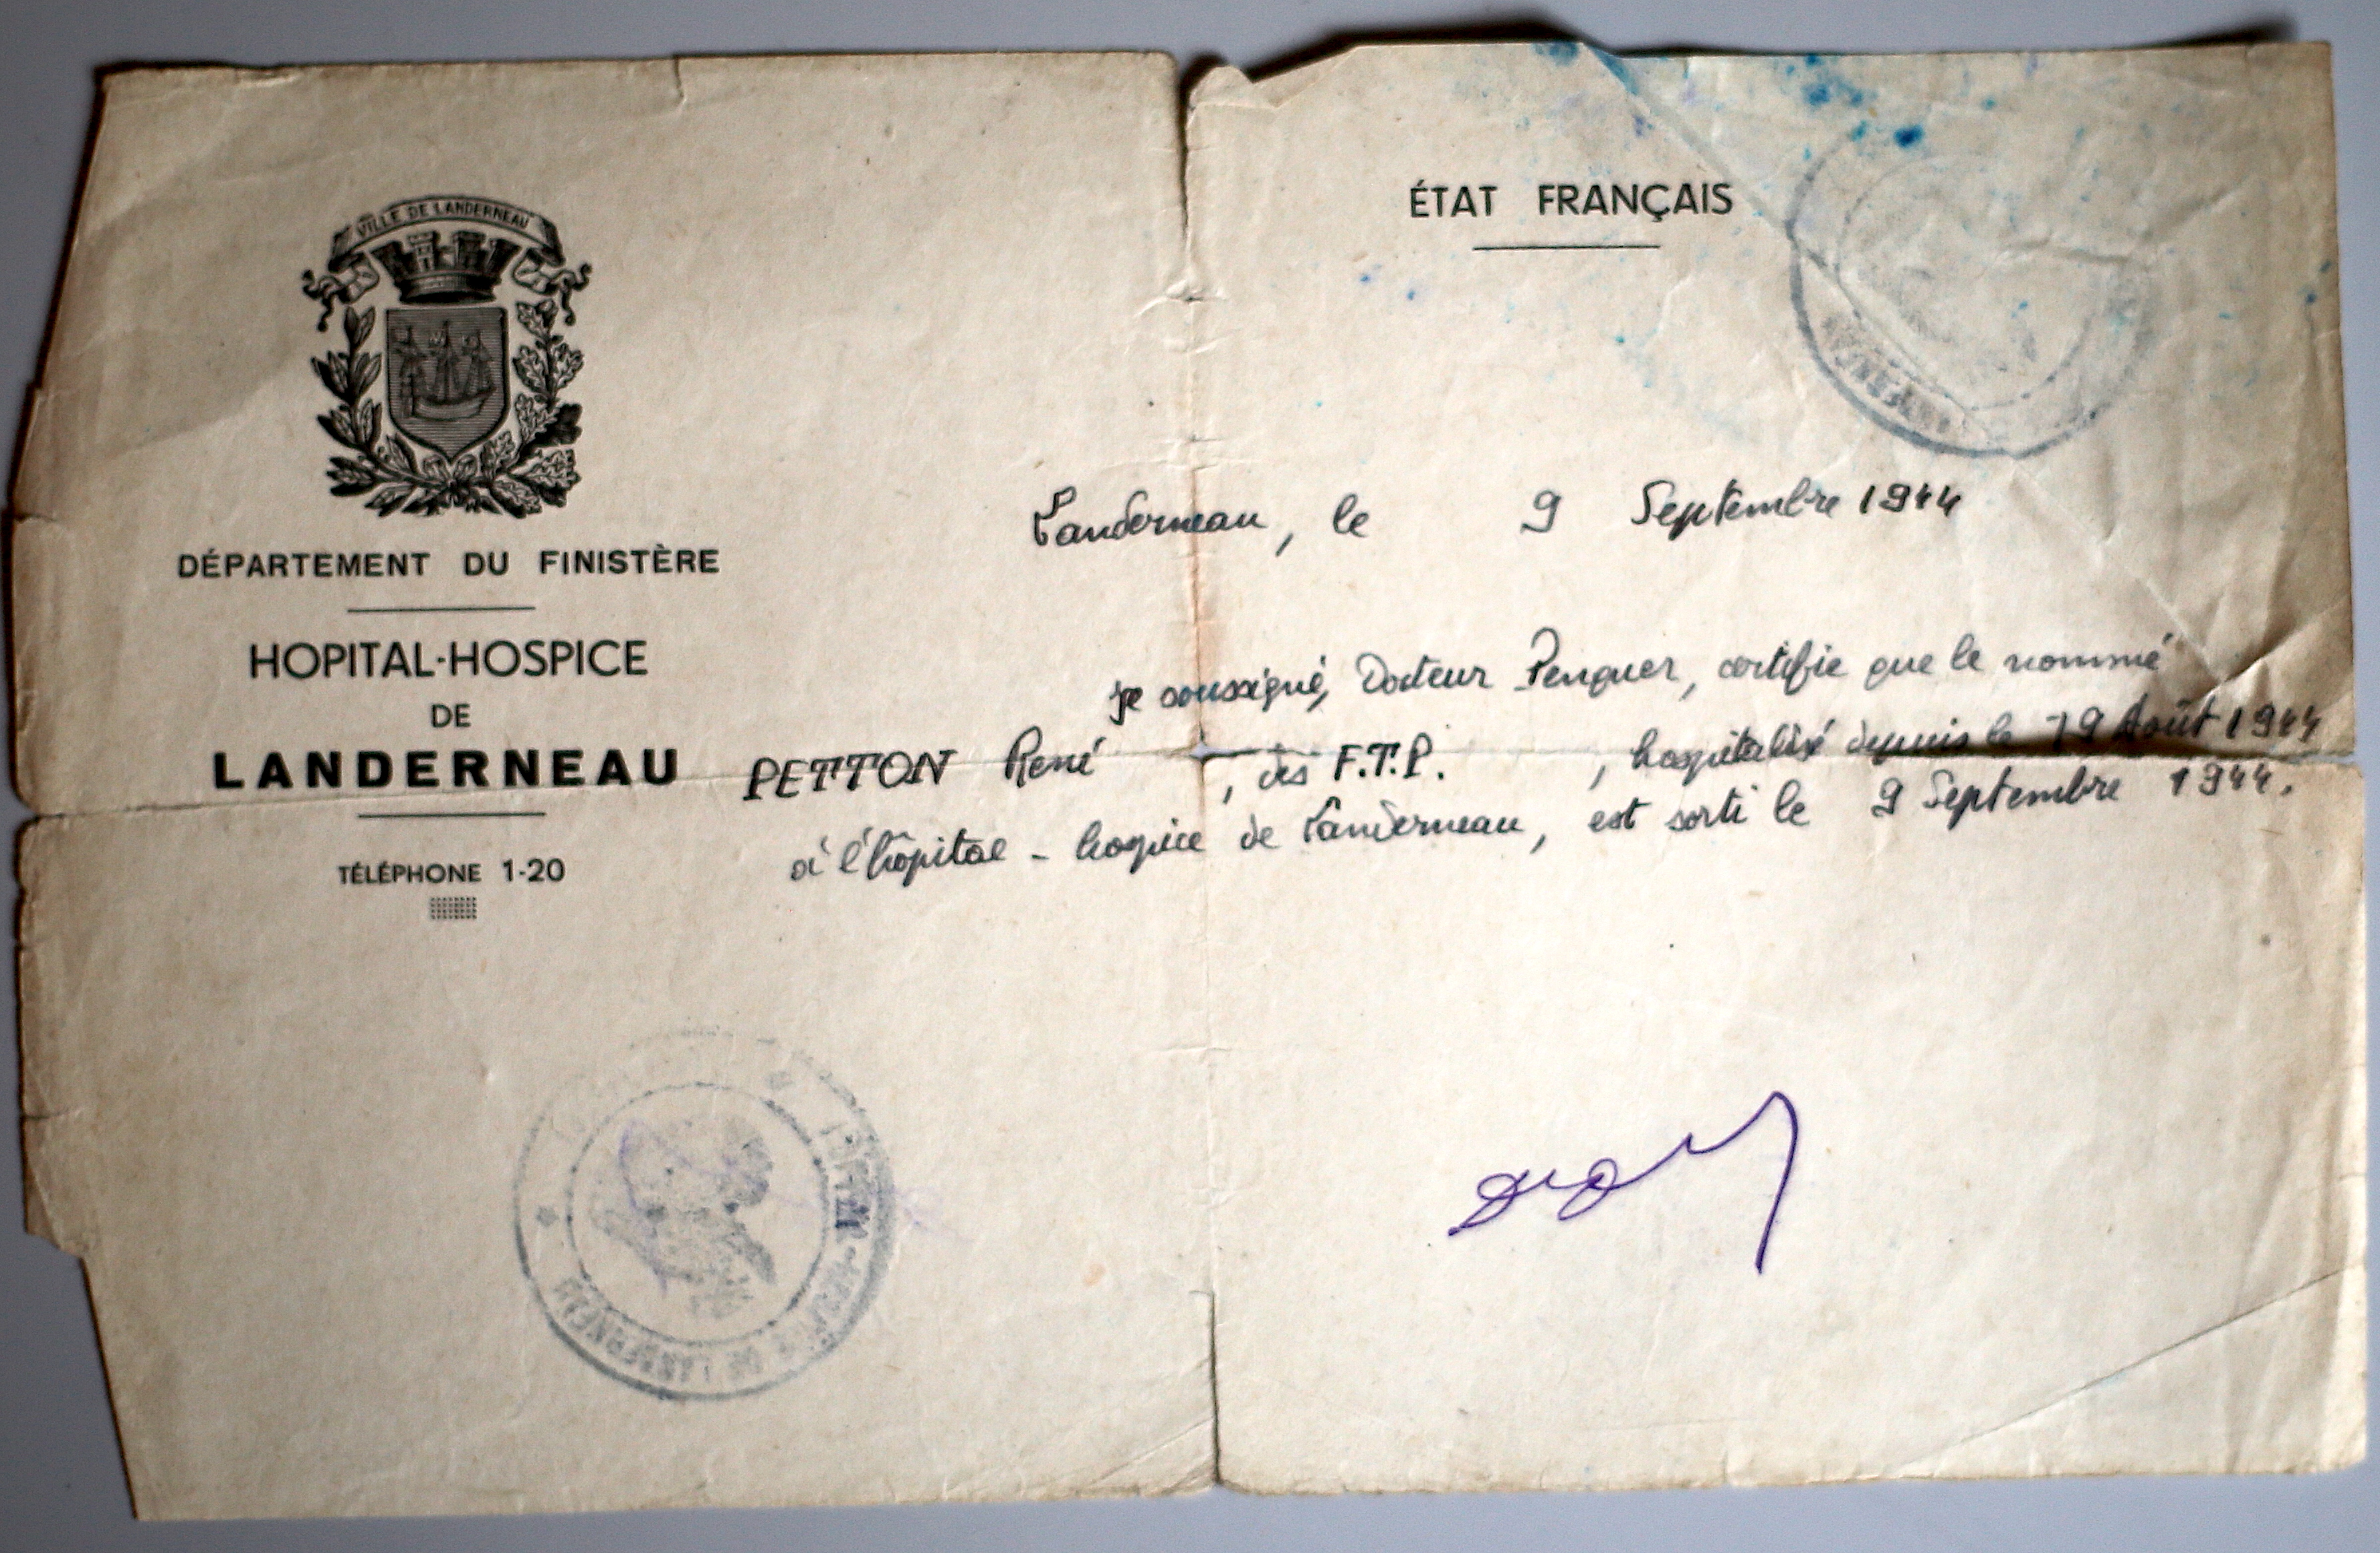 VILLE DE LANDERNEAU
DÉPARTEMENT DU FINISTÈRE
HOPITAL-HOSPICE
DE
LANDERNEAU
TÉLÉPHONE 1-20
ÉTAT FRANÇAIS
Landerneau, le 9 Septembre 1944
je soussigné, Docteur Penquer, certifie que le nommé
PETTON René, des F.T.P., hospitalisé depuis le 19 Août 1944
à l'hôpital - hospice de Landerneau, est sorti le 9 Septembre 1944.
HOSPICE DE LANDERNEAU